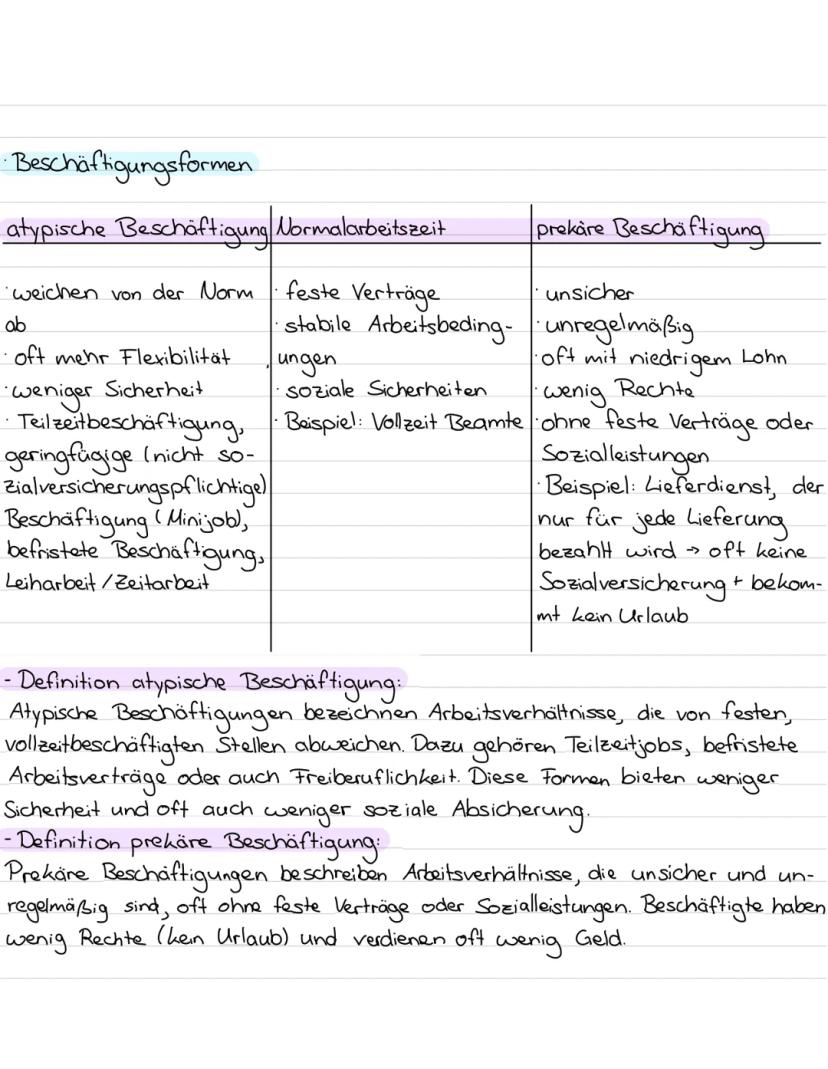 · Beschäftigungsformen
atypische Beschäftigung
· weichen von der Norm
ab
· oft mehr Flexibilität
· weniger Sicherheit
· Teilzeitbeschäftigung,
geringfügige (nicht so-
zialversicherungspflichtige)
Beschäftigung (Minijob),
befristete Beschäftigung,
Leiharbeit / Zeitarbeit
Normalarbeitszeit
· feste Verträge
· stabile Arbeitsbeding-
ungen
· soziale Sicherheiten
· Beispiel: Vollzeit Beamte
prekäre Beschäftigung
· unsicher
· unregelmäßig
· oft mit niedrigem Lohn
· wenig Rechte
· ohne feste Verträge oder
Sozialleistungen
· Beispiel: Lieferdienst, der
nur für jede Lieferung
bezahlt wird → oft keine
Sozialversicherung + bekom-
mt kein Urlaub
- Definition atypische Beschäftigung:
Atypische Beschäftigungen bezeichnen Arbeitsverhältnisse, die von festen,
vollzeitbeschäftigten Stellen abweichen. Dazu gehören Teilzeitjobs, befristete
Arbeitsverträge oder auch Freiberuflichkeit. Diese Formen bieten weniger
Sicherheit und oft auch weniger soziale Absicherung.
- Definition prekäre Beschäftigung:
Prekäre Beschäftigungen beschreiben Arbeitsverhältnisse, die unsicher und un-
regelmäßig sind, oft ohne feste Verträge oder Sozialleistungen. Beschäftigte haben
wenig Rechte (kein Urlaub) und verdienen oft wenig Geld.